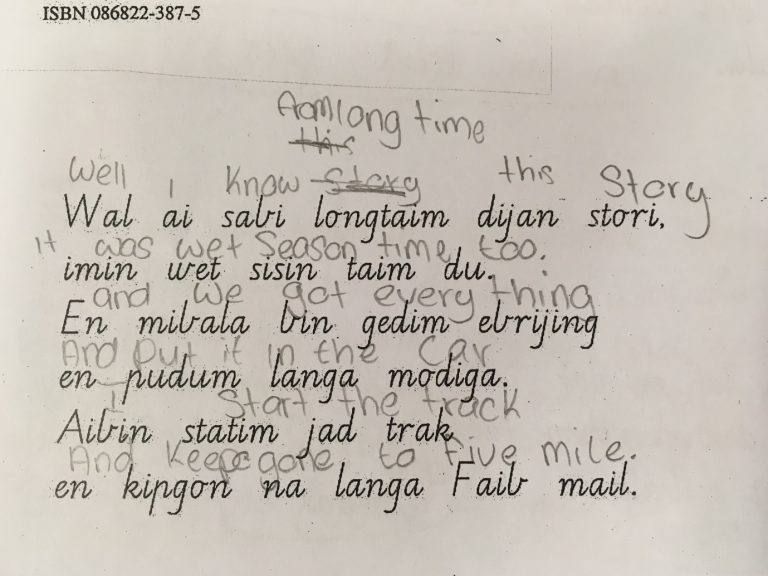 ISBN 086822-387-5
long time
this
Well I know Story this Story
Wal ai sabi longtaim dijan stori,
it was wet Season time too.
imin wet sisin taim du.
and we got every thing
En mibala bin gedim ebrijing
And put it in the Car
en pudum langa modiga.
I Start the track
Aibin statim jad trak
And Keep gone to Five mile.
en kipgon na langa Faib mail.